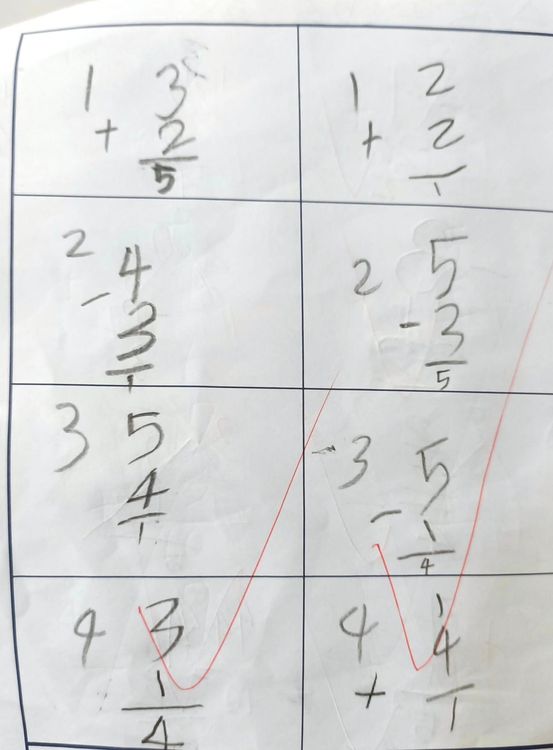 1 3
+ 2
5
1 2
+ 2
1
2 4
- 3
1
2 5
- 3
5
3 5
4
1
- 3 5
- 1
4
4 3
1
4
4 1
4
+
1